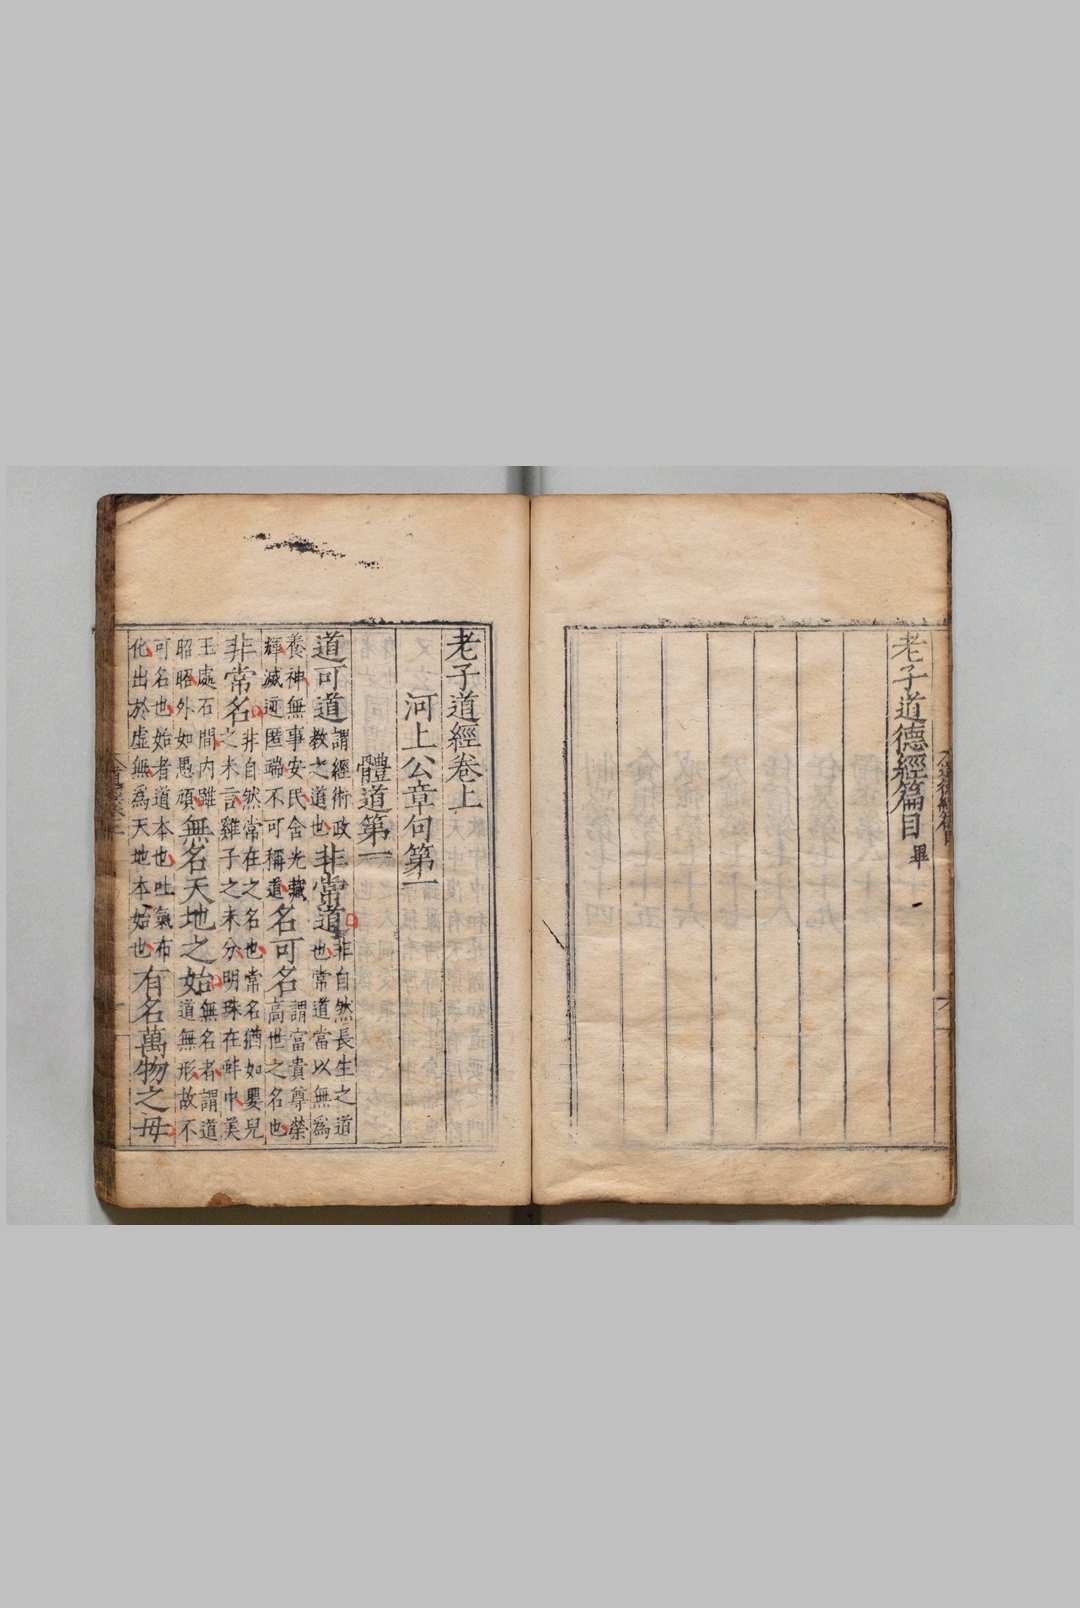 老子道德經篇目畢
老子道經卷上
河上公章句第一
體道第一
道可道謂經術政教之道也非常道非自然長生之道也常道當以無爲
養神無事安民含光藏輝滅迹匿端不可稱道名可名謂富貴尊榮高世之名也
非常名非自然常在之名也常名猶如嬰兒之未言雞子之未分明珠在蚌中美
玉處石間内雖昭昭外如愚頑無名天地之始無名者謂道道無形故不
可名也始者道本也吐氣布化出於虛無爲天地本始也有名萬物之母